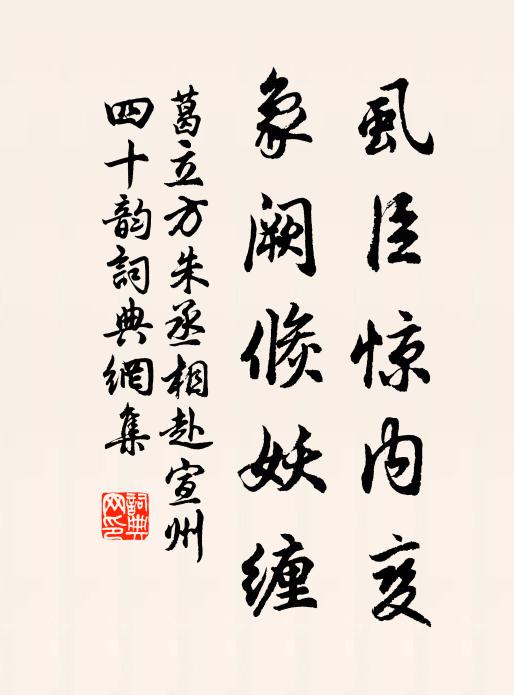 虱臣惊内变
象阙倏妖缠
葛立方朱丞相赴宣州
四十韵詞典網集
詞典网印